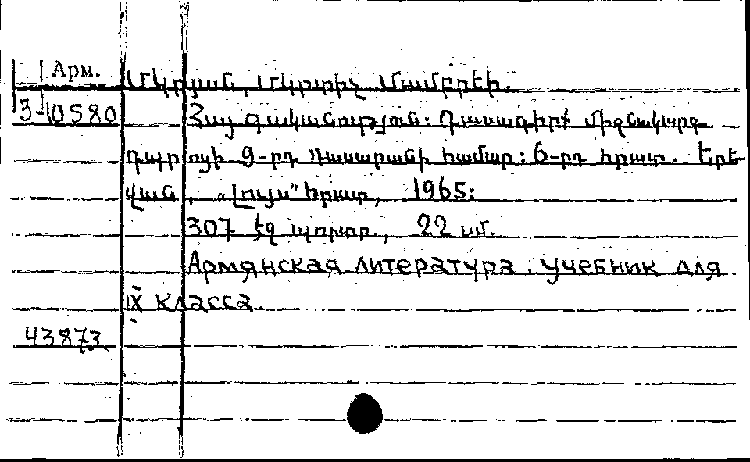 Арм.
Մկրյան, Մկրտիչ Մամբրեի.
3-10580
Հայ գրականություն: Դասագիրք միջնակարգ
դպրոցի 9-րդ դասարանի համար: 6-րդ հրատ. Երե
վան, „Լույս" հրատ, 1965:
307 էջ պորտր., 22 սմ.
Армянская литература. учебник для
IX класса.
43873